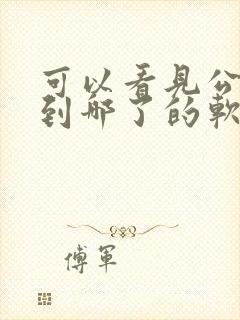 可以看見公
到哪了的軟
傅軍